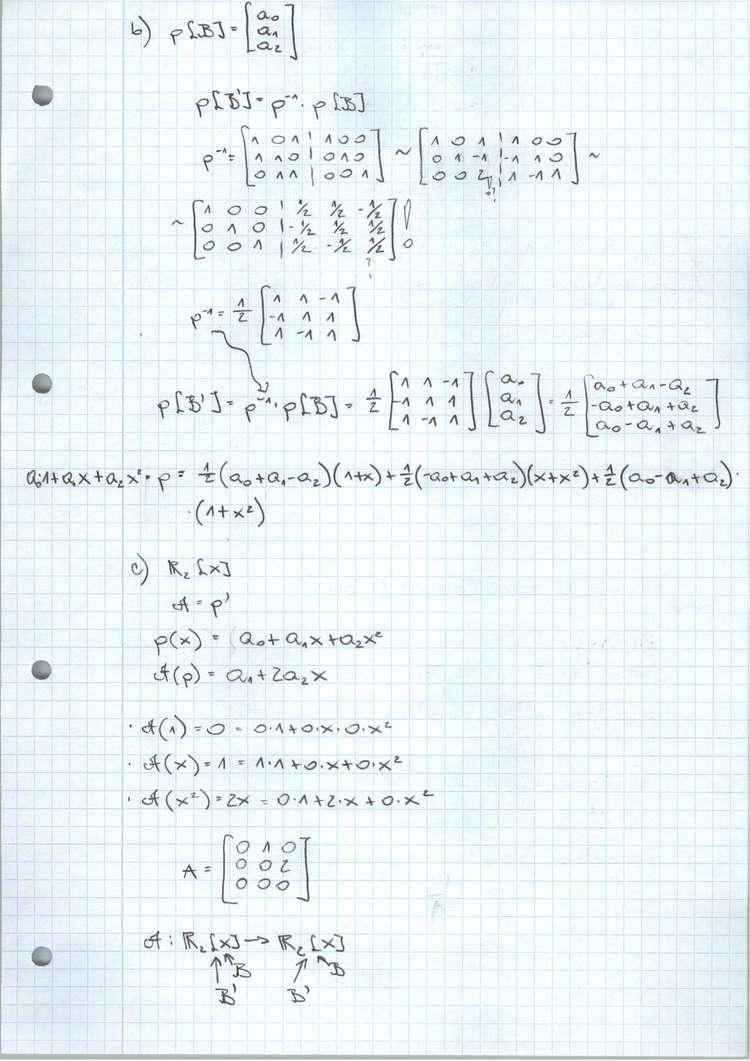 b) p[B] = [a₀ a₁ a₂]
p[B'] = p⁻¹ · p[B]
p⁻¹ = [1 0 1 | 1 0 0 ~ [1 0 1 | 1 0 0 ~
1 1 0 | 0 1 0 0 1 -1 | -1 1 0
0 1 1 | 0 0 1] 0 0 2 | 1 -1 1]
~ [1 0 0 | 1/2 1/2 -1/2 !
0 1 0 | -1/2 1/2 1/2
0 0 1 | 1/2 -1/2 1/2]
p⁻¹ = 1/2 [1 1 -1
-1 1 1
1 -1 1]
p[B'] = p⁻¹ · p[B] = 1/2 [1 1 -1 [a₀ = 1/2 [a₀+a₁-a₂
-1 1 1 a₁ -a₀+a₁+a₂
1 -1 1] a₂] a₀-a₁+a₂]
a₀1+a₁x+a₂x² = p = 1/2(a₀+a₁-a₂)(1+x)+1/2(-a₀+a₁+a₂)(x+x²)+1/2(a₀-a₁+a₂)·
·(1+x²)
c) ℝ₂[x]
𝒜 = p'
p(x) = a₀+a₁x+a₂x²
𝒜(p) = a₁+2a₂x
· 𝒜(1) = 0 = 0·1+0·x·0·x²
· 𝒜(x) = 1 = 1·1+0·x+0·x²
· 𝒜(x²) = 2x = 0·1+2·x+0·x²
A = [0 1 0
0 0 2
0 0 0]
𝒜 : ℝ₂[x] → ℝ₂[x]
B B
B' B'